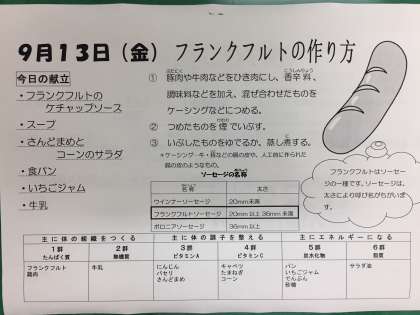 9月13日（金） フランクフルトの作り方
今日の献立
・フランクフルトの
ケチャップソース
・スープ
・さんどまめと
コーンのサラダ
・食パン
・いちごジャム
・牛乳
① 豚肉や牛肉などをひき肉にし、香辛料、
調味料などを加え、混ぜ合わせたものを
ケーシングなどにつめる。
② つめたものを煙でいぶす。
③ いぶしたものをゆでるか、蒸し煮する。
＊ケーシング…牛・豚などの腸の皮や、人工的に作られた
腸の皮のようなもの。
ソーセージの名称
名称 太さ
ウインナーソーセージ 20mm未満
フランクフルトソーセージ 20mm以上36mm未満
ボロニアソーセージ 36mm以上
フランクフルトはソーセー
ジの一種です。ソーセージは、
太さにより呼び名がちがいま
す。
主に体の組織をつくる 主に体の調子を整える 主にエネルギーになる
1群 2群 3群 4群 5群 6群
たんぱく質 無機質 ビタミンA ビタミンC 炭水化物 脂質
フランクフルト 牛乳 にんじん キャベツ パン サラダ油
鶏肉 パセリ たまねぎ いちごジャム
さんどまめ コーン でんぷん
砂糖